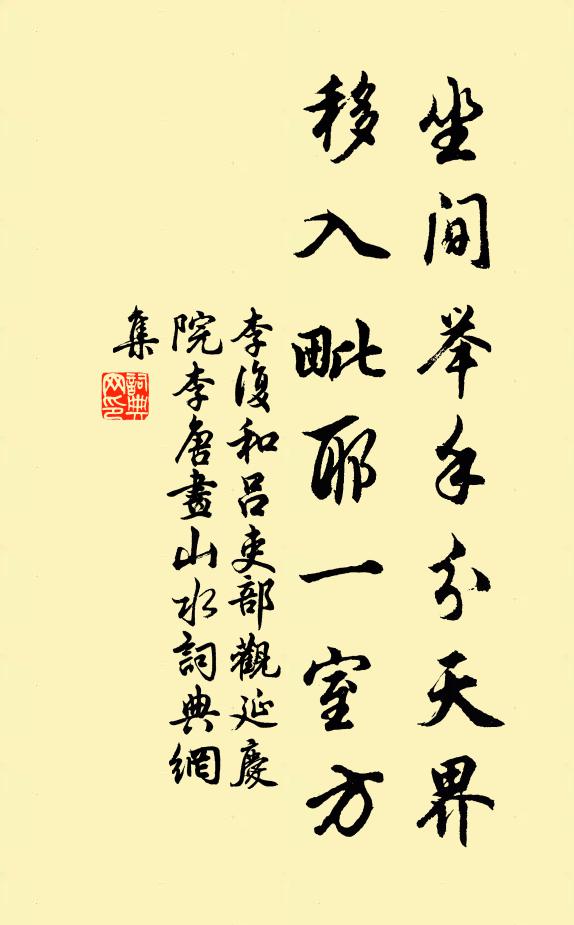 坐间举手分天界
移入毗耶一室方
李復和呂吏部觀延慶
院李唐畫山水詞典網
集
詞典网印